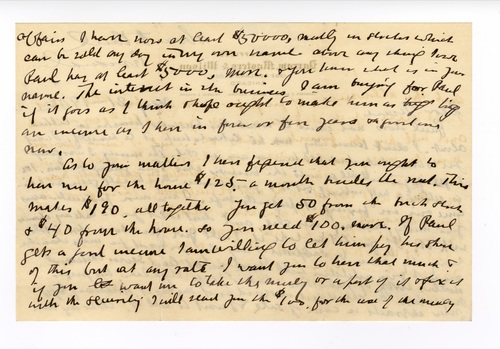 affairs I have now at least $50000, mostly in stocks which
can be sold any day in my own name above any thing I owe
Paul has at least $5000, more. & you know what is in your
name. The interest in the business I am buying for Paul
if it goes as I think & hope ought to make him as big
an income as I have in four or five years
now.
As to your matters I have figured that you ought to
have now for the house $125 - a month besides the rent. This
makes $190. all together You get 50 from the
& $40 from the house. so you need $100. more. If Paul
gets a good income I am willing to let him pay his share
of this but at any rate I want you to have that much &
if you want me to take the money or a part of it
with the security I will send you the $100. for the use of the money